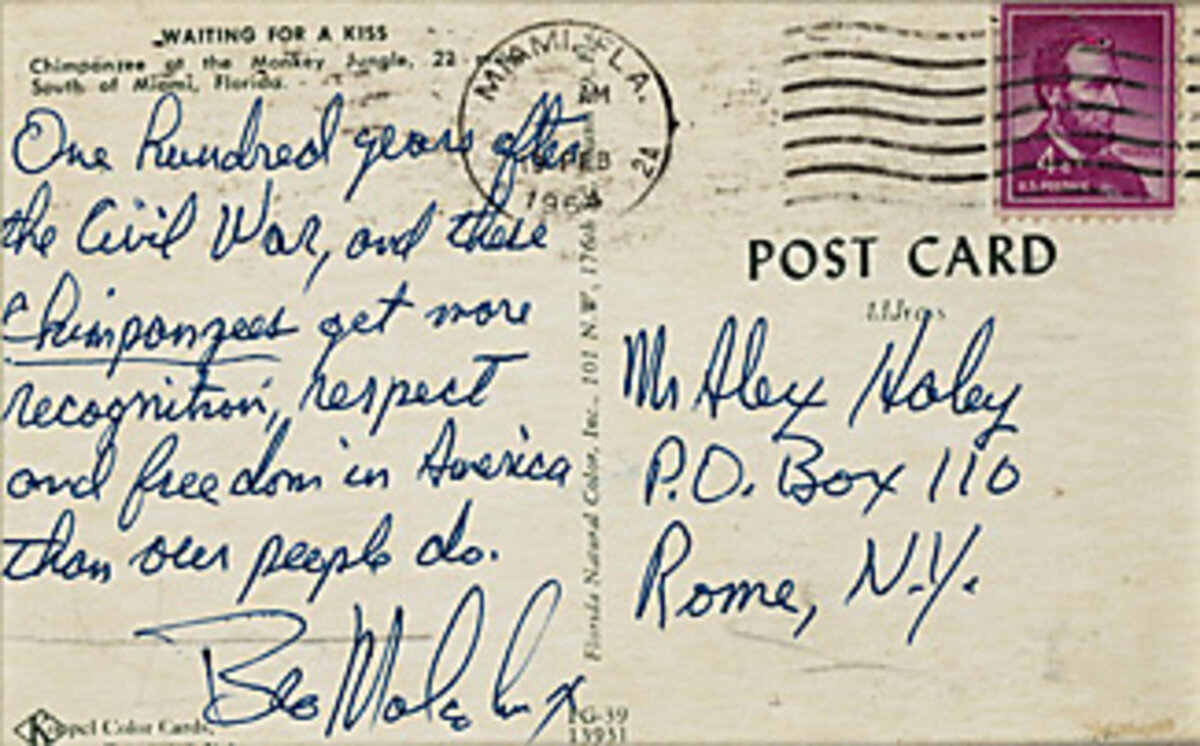 WAITING FOR A KISS
Chimpanzee at the Monkey Jungle, 22
South of Miami, Florida.
One hundred years after
the Civil War, and these
Chimpanzees get more
recognition, respect
and freedom in America
than our people do.
Bro Malcolm X
Color Cards,
FG-39
13931
Florida Natural Color, Inc., 101 N.W. 176th
MIAMI, FLA.
PM
FEB
1964
24
4¢
U.S. POSTAGE
POST CARD
Address
Mr Alex Haley
P.O. Box 110
Rome, N.Y.